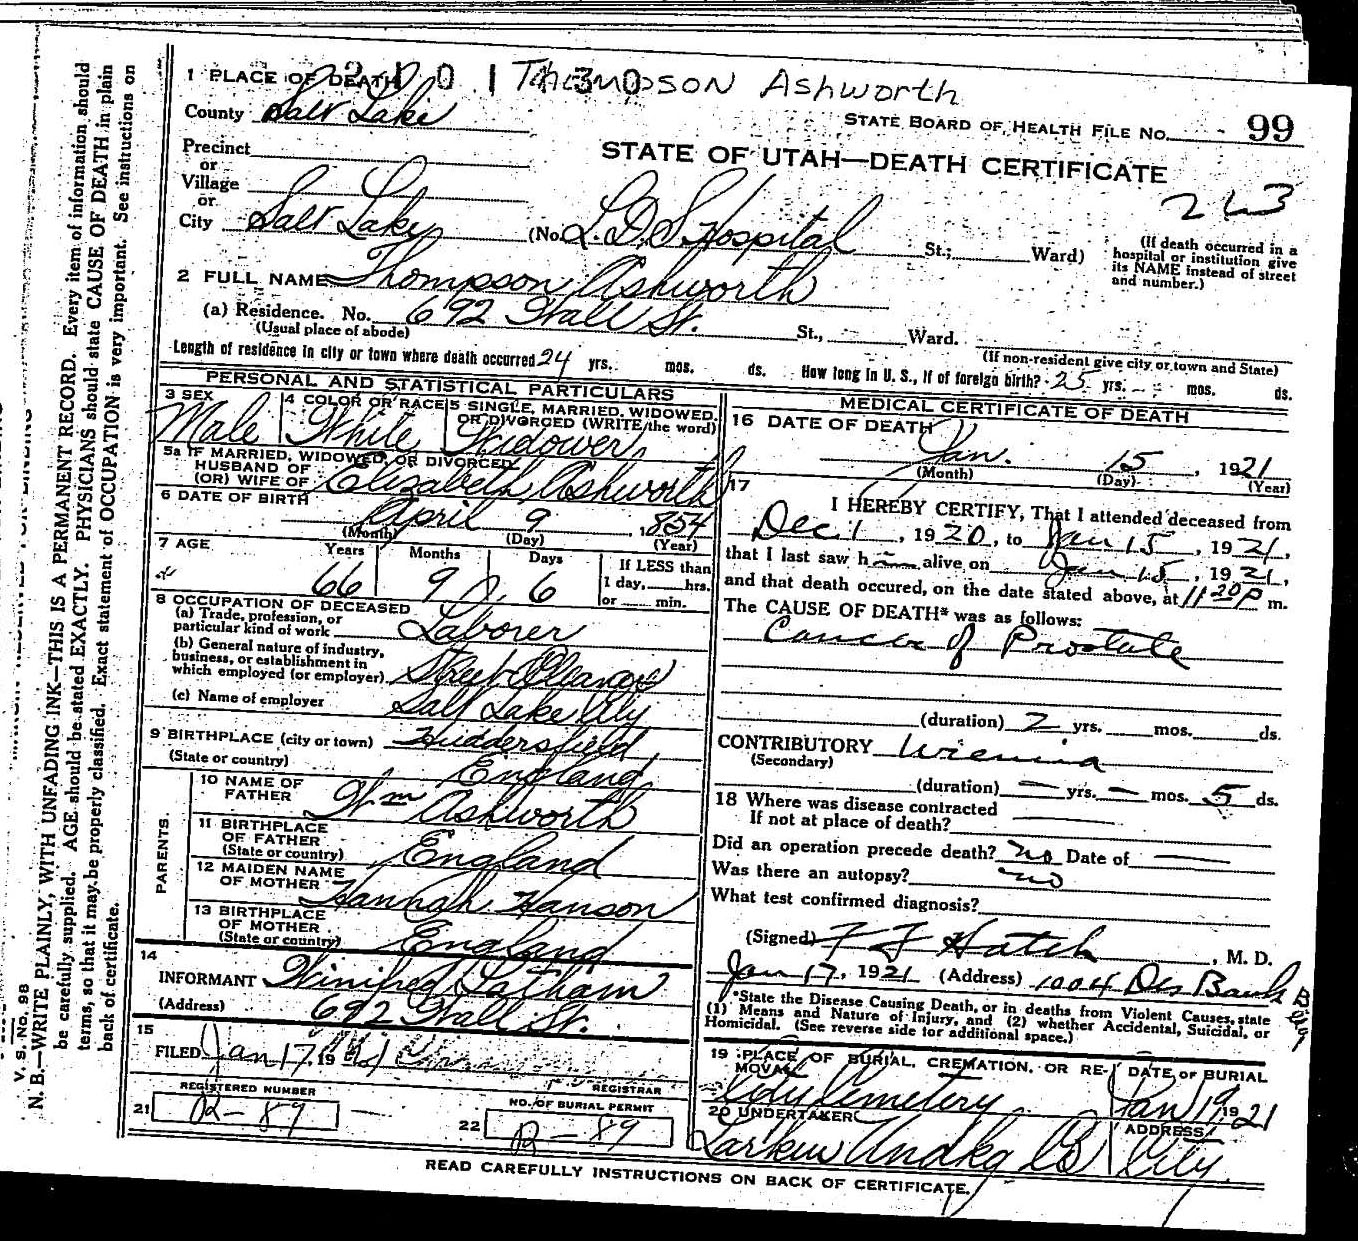 1 PLACE OF DEATH Thompson Ashworth
County Salt Lake
STATE BOARD OF HEALTH FILE NO. 99
Precinct
or
Village
or
City Salt Lake (No. L.D.S. Hospital St.; Ward)
STATE OF UTAH—DEATH CERTIFICATE
263
(If death occurred in a hospital or institution give its NAME instead of street and number.)
2 FULL NAME Thompson Ashworth
(a) Residence. No. 692 Wall St. St., Ward.
(Usual place of abode)
(If non-resident give city or town and State)
Length of residence in city or town where death occurred 24 yrs. mos. ds. How long in U. S., if of foreign birth? 25 yrs. mos. ds.
PERSONAL AND STATISTICAL PARTICULARS
3 SEX Male
4 COLOR OR RACE White
5 SINGLE, MARRIED, WIDOWED, OR DIVORCED (WRITE the word) Widower
5a IF MARRIED, WIDOWED, OR DIVORCED
HUSBAND OF
(OR) WIFE OF Elizabeth Ashworth
6 DATE OF BIRTH April 9, 1854
(Month) (Day) (Year)
7 AGE Years 66 Months 9 Days 6
If LESS than
1 day, hrs.
or min.
8 OCCUPATION OF DECEASED
(a) Trade, profession, or
particular kind of work Laborer
(b) General nature of industry,
business, or establishment in
which employed (or employer) Street Cleaner
(c) Name of employer Salt Lake City
9 BIRTHPLACE (city or town) Huddersfield
(State or country) England
PARENTS
10 NAME OF
FATHER Wm Ashworth
11 BIRTHPLACE
OF FATHER
(State or country) England
12 MAIDEN NAME
OF MOTHER Hannah Hanson
13 BIRTHPLACE
OF MOTHER
(State or country) England
14
INFORMANT Winifred Latham
(Address) 692 Wall St.
15
FILED Jan 17, 19
REGISTRAR
REGISTERED NUMBER
21 R-89
NO. OF BURIAL PERMIT
22 R-89
MEDICAL CERTIFICATE OF DEATH
16 DATE OF DEATH
Jan. 15, 1921
(Month) (Day) (Year)
17
I HEREBY CERTIFY, That I attended deceased from
Dec 1, 1920, to Jan 15, 1921,
that I last saw him alive on Jan 15, 1921,
and that death occured, on the date stated above, at 11 20 P m.
The CAUSE OF DEATH* was as follows:
Cancer of Prostate
(duration) 2 yrs. mos. ds.
CONTRIBUTORY Uremia
(Secondary)
(duration) — yrs. — mos. 5 ds.
18 Where was disease contracted
If not at place of death?
Did an operation precede death? no Date of —
Was there an autopsy? no
What test confirmed diagnosis?
(Signed) F F Hatch, M. D.
Jan 17, 1921 (Address) 1004 Des Bank Bldg
*State the Disease Causing Death, or in deaths from Violent Causes, state
(1) Means and Nature of Injury, and (2) whether Accidental, Suicidal, or
Homicidal. (See reverse side for additional space.)
19 PLACE OF BURIAL, CREMATION, OR RE-
MOVAL City Cemetery
DATE OF BURIAL
Jan 19 1921
20 UNDERTAKER
Larkin Undkg Co
ADDRESS
City
READ CAREFULLY INSTRUCTIONS ON BACK OF CERTIFICATE.
V. S. NO. 98
N. B.—WRITE PLAINLY, WITH UNFADING INK—THIS IS A PERMANENT RECORD. Every item of information should
be carefully supplied. AGE should be stated EXACTLY. PHYSICIANS should state CAUSE OF DEATH in plain
terms, so that it may be properly classified. Exact statement of OCCUPATION is very important. See instructions on
back of certificate.